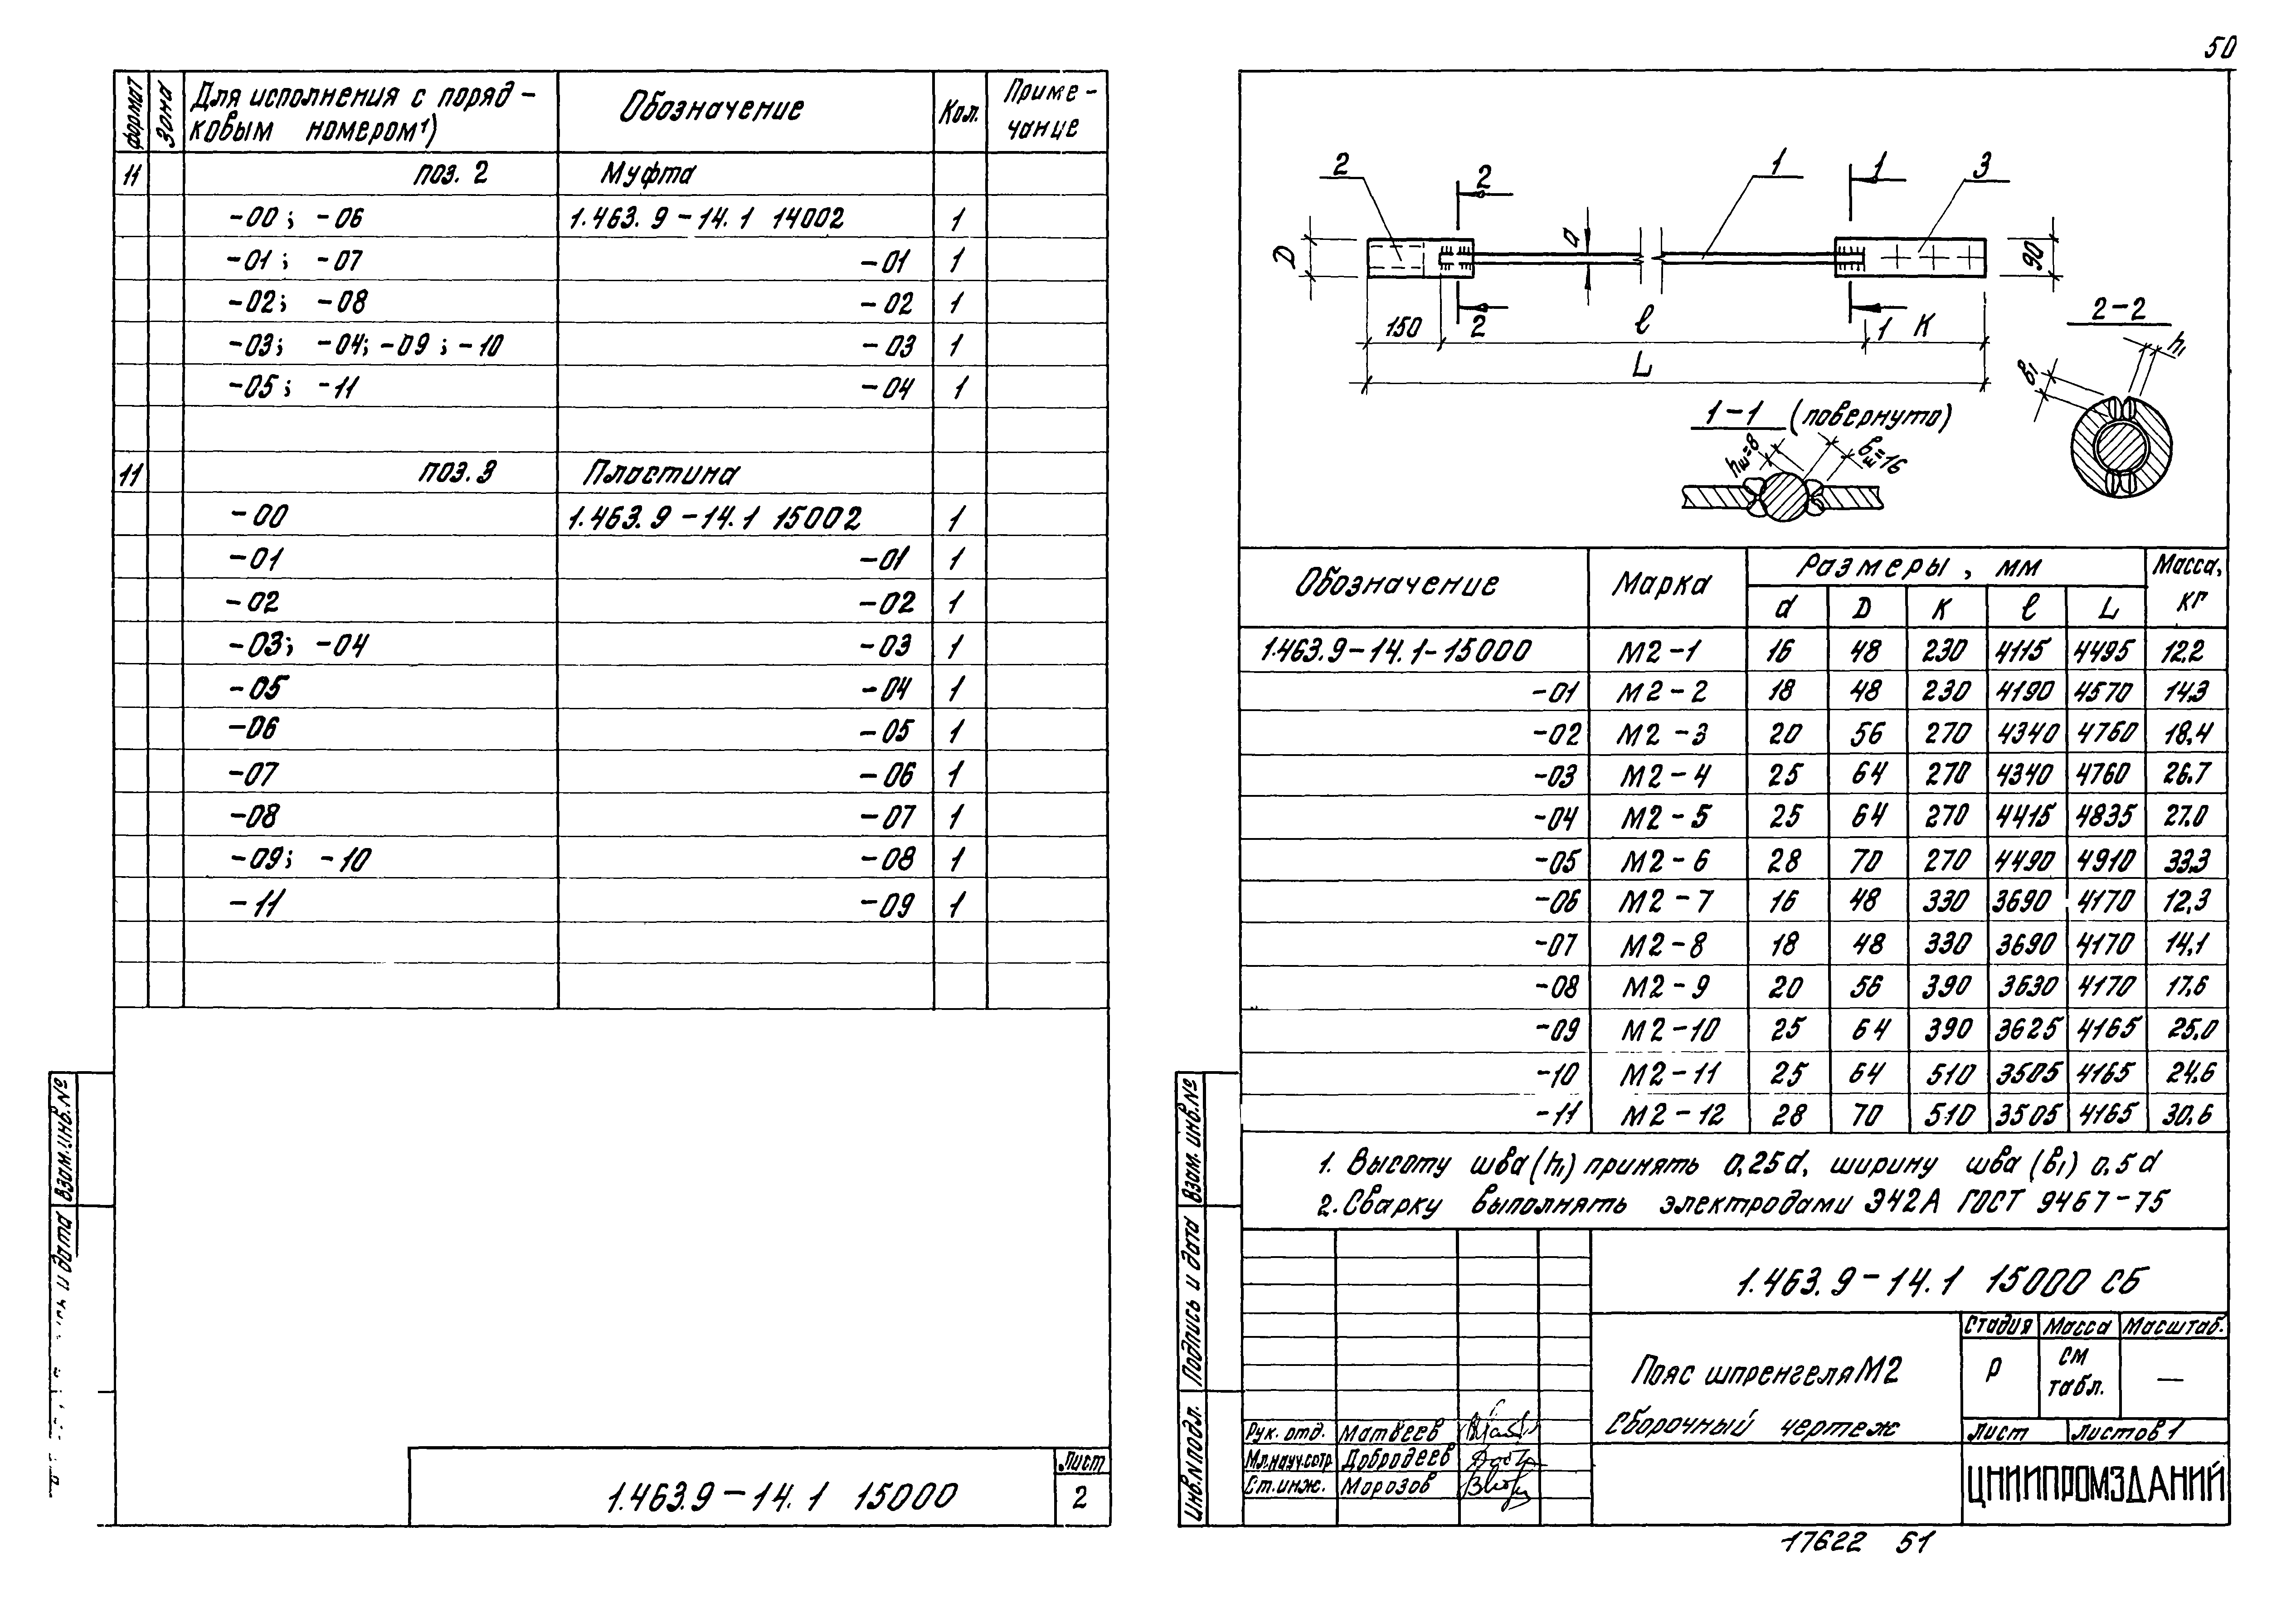 50
формат | зона | Для исполнения с поряд- | Обозначение | Кол. | Приме-
ковым номером¹) | чание
11 | поз. 2 | Муфта
-00; -06 | 1.463.9-14.1 14002 | 1
-01; -07 | -01 | 1
-02; -08 | -02 | 1
-03; -04; -09; -10 | -03 | 1
-05; -11 | -04 | 1
11 | поз. 3 | Пластина
-00 | 1.463.9-14.1 15002 | 1
-01 | -01 | 1
-02 | -02 | 1
-03; -04 | -03 | 1
-05 | -04 | 1
-06 | -05 | 1
-07 | -06 | 1
-08 | -07 | 1
-09; -10 | -08 | 1
-11 | -09 | 1
Взам. инв. №
и дата
1.463.9-14.1 15000
Лист
2
2 2 1 1 3
D d 90
150 2 ℓ 1 K
L
2-2
h₁
в₁
1-1 (повернуто)
hш=8
вш=16
Обозначение | Марка | Размеры, мм | Масса,
d | D | K | ℓ | L | кг
1.463.9-14.1-15000 | М2-1 | 16 | 48 | 230 | 4115 | 4495 | 12.2
-01 | М2-2 | 18 | 48 | 230 | 4190 | 4570 | 14,3
-02 | М2-3 | 20 | 56 | 270 | 4340 | 4760 | 18,4
-03 | М2-4 | 25 | 64 | 270 | 4340 | 4760 | 26.7
-04 | М2-5 | 25 | 64 | 270 | 4415 | 4835 | 27.0
-05 | М2-6 | 28 | 70 | 270 | 4490 | 4910 | 33.3
-06 | М2-7 | 16 | 48 | 330 | 3690 | 4170 | 12,3
-07 | М2-8 | 18 | 48 | 330 | 3690 | 4170 | 14,1
-08 | М2-9 | 20 | 56 | 390 | 3630 | 4170 | 17,6
-09 | М2-10 | 25 | 64 | 390 | 3625 | 4165 | 25.0
-10 | М2-11 | 25 | 64 | 510 | 3505 | 4165 | 24.6
-11 | М2-12 | 28 | 70 | 510 | 3505 | 4165 | 30.6
1. Высоту шва (h₁) принять 0,25d, ширину шва (в₁) 0,5d
2. Сварку выполнять электродами Э42А ГОСТ 9467-75
Взам. инв. №
Подпись и дата
Инв. № подл.
1.463.9-14.1 15000 СБ
Пояс шпренгеля М2
Сборочный чертеж
Стадия | Масса | Масштаб.
Р | см табл. | —
Лист | Листов 1
Рук. отд. Матвеев
Мл. науч. сотр. Добродеев
Ст. инж. Морозов
ЦНИИПРОМЗДАНИЙ
17622 51